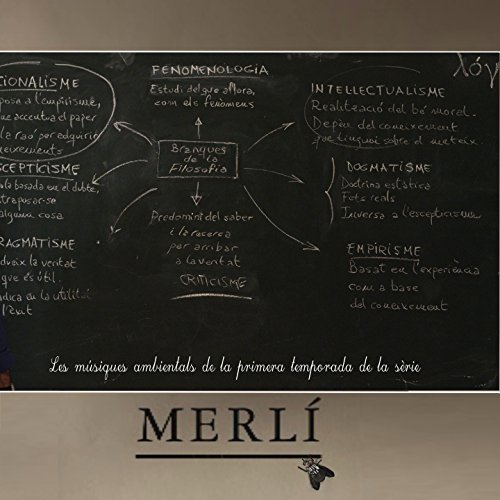 CIONALISME
posa a l'empirisme,
ue accentua el paper
e la raó per adquirir
eixements
SCEPTICISME
ola basada en el dubte,
traposar-se
alguna cosa
RAGMATISME
dueix la veritat
que és útil.
ndica de la utilitat
l'èxit
FENOMENOLOGIA
Estudi del que aflora,
com els fenòmens
Branques
de la
Filosofia
Predomini del saber
i la recerca
per arribar
a la veritat
CRITICISME
λόγ
INTEL·LECTUALISME
Realització del bé moral.
Depèn del coneixement
que tinguin sobre el mateix
DOGMATISME
Doctrina estàtica
Fets reals
Inversa a l'escepticisme
EMPIRISME
Basat en l'experiència
com a base
del coneixement
Les músiques ambientals de la primera temporada de la sèrie
MERLÍ